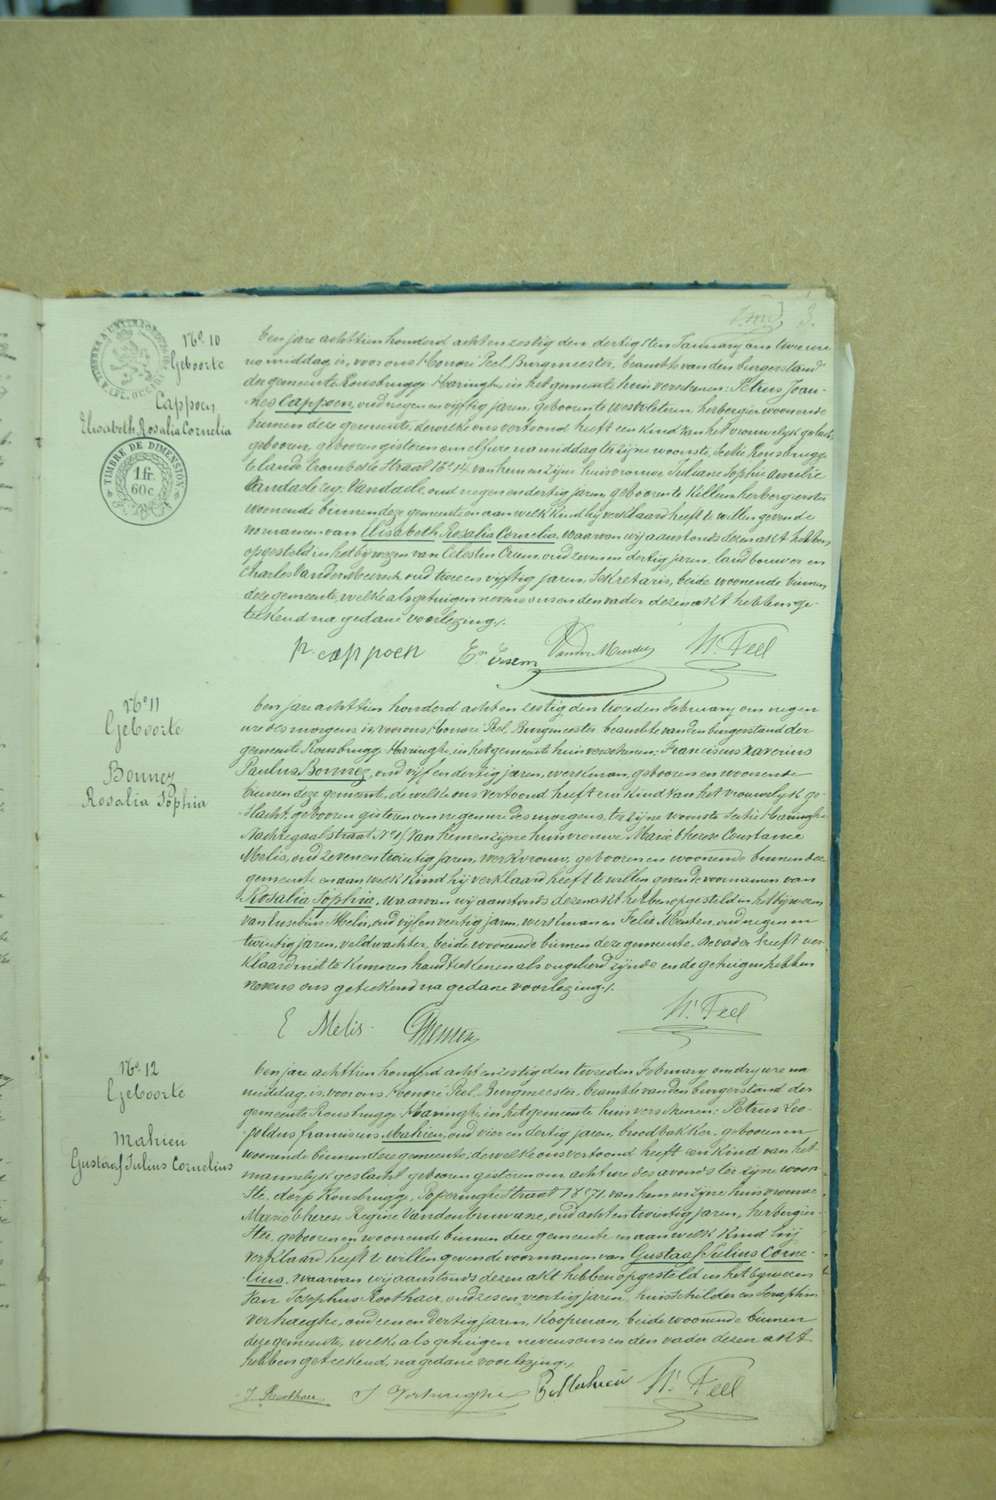 3.
No. 10
Geboorte
Cappoen
Elisabeth Rosalia Cornelia
TIMBRE DE DIMENSION
1 fr.
60c.
Een jare achttien honderd acht en zestig den dertigsten January om twee ure
na middag is, voor ons Honoré Peel Burgmeester, beambte van den burgerstand
der gemeente Rousbrugge Haringhe in het gemeente huis verschenen: Petrus Joan-
nes Cappoen, oud negen en vyftig jaren, geboren te Westvleteren, herbergier woonende
binnen deze gemeente, dewelke ons vertoond heeft een kind van het vrouwelyk geslacht,
geboren gisteren om elf ure na middag te zyne woonste, sectie Rousbrugge
straat No. 14 van hem en zyne huisvrouw Juliana Sophie Amelie
Vandaele, oud negen en dertig jaren, geboren te Killem herbergierster
woonende binnen deze gemeente en aan welk kind hy verklaard heeft te willen geven de
vornamen van Elisabeth Rosalia Cornelia, waarvan wy aanstonds dezen akt hebben
opgesteld in het bywezen van Celestin Criem, oud zeven en dertig jaren, landbouwer en
Charles Vander Meersch oud twee en vyftig jaren, Sekretaris, beide woonende binnen
deze gemeente, welke als getuigen nevens ons en den vader dezen akt hebben ge-
teekend na gedane voorlezing.
P. Cappoen
H. Peel
No. 11
Geboorte
Bonnez
Rosalia Sophia
Een jare achttien honderd acht en zestig den tweeden February om negen
ure des morgens is voor ons Honoré Peel Burgmeester beambte van den burgerstand der
gemeente Rousbrugge Haringhe, in het gemeente huis verschenen: Franciscus Xaverius
Paulus Bonnez, oud vyf en dertig jaren, werkman, geboren en woonende
binnen deze gemeente, dewelke ons vertoond heeft een kind van het vrouwelyk ge-
slacht, geboren gisteren om negen ure des morgens, te zyne woonste Sectie Haringhe
Nachtegaalstraat, van hem en zyne huisvrouw Marie Therese Constance
Melis, oud zeven en twintig jaren, werkvrouw, geboren en woonende binnen deze
gemeente en aan welk kind hy verklaard heeft te willen geven de voornamen van
Rosalia Sophia, waarvan wy aanstonds dezen akt hebben opgesteld in het bywezen
van Melis, oud vyf en veertig jaren, werkman en Felix oud negen en
twintig jaren, veldwachter, beide woonende binnen deze gemeente. De vader heeft ver-
klaard niet te kunnen handteekenen als ongeleerd zynde en de getuigen hebben
nevens ons geteekend na gedane voorlezing.
E Melis
H. Peel
No. 12
Geboorte
Mahieu
Gustaaf Julius Cornelius
Een jare achttien honderd acht en zestig den tweeden February om dry ure na
middag, is voor ons Honoré Peel Burgmeester, beambte van den burgerstand der
gemeente Rousbrugge Haringhe, in het gemeente huis verschenen: Petrus Leo-
poldus franciscus Mahieu, oud vier en dertig jaren, broodbakker, geboren en
woonende binnen deze gemeente, dewelke ons vertoond heeft een kind van het
mannelyk geslacht geboren gisteren om acht ure des avonds te zyne woon-
ste, dorp Rousbrugge, Poperinghestraat van hem en zyne huisvrouw
Marie Therese Regine oud acht en twintig jaren, herbergier-
ster, geboren en woonende binnen deze gemeente en aan welk kind hy
verklaard heeft te willen geven de voornamen van Gustaaf Julius Corne-
lius, waarvan wy aanstonds dezen akt hebben opgesteld in het bywezen
van Josephus Roothaer, oud zes en veertig jaren, huisschilder en Seraphin
Verhaeghe, oud een en dertig jaren, koopman, beide woonende binnen
deze gemeente, welke als getuigen nevens ons en den vader dezen akt
hebben geteekend, na gedane voorlezing.
J. Roothaer S Verhaeghe P. Mahieu H. Peel